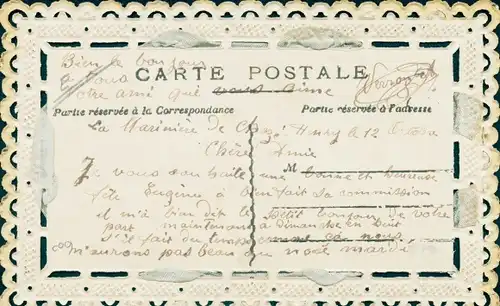 Bien le bonjour
a vous
votre ami qui vous aime
CARTE POSTALE
Partie réservée à la Correspondance
Partie réservée à l'adresse
La Marinière de Henry 12
Chère Amie
M
Je vous souhaite une bonne et heureuse
fête Eugène a bien fait sa commission
il m'a bien dit le petit bonjour de votre
part maintenant à dimanche en
s'il fait du temps
n'aurons pas beau noël mardi